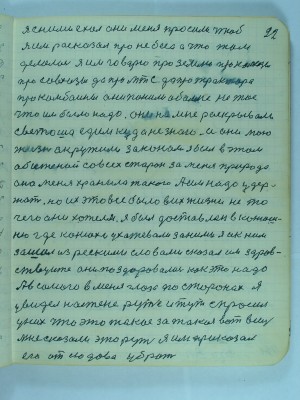 22
я с ними ехал они меня просили чтоб
я им расказал про небеса что там
делали я им говорю про землю про
про совхозы да про МТС да про трактора
про комбайны они поним не то
что им было надо, они мне раскрывали
едем куда не знаю. и они мою
жизнь окружили законом я был в том
со всех сторон за меня природа
она меня хранила такого Я им надо удер-
жать, но их это все было в их жизни не то
чего они хотели, я был доставлен в конюш-
ню где конюхи ухаживали за ними я и к ним
зашел из рескими словами сказал им здрав-
ствуйте они поздоровали как это надо
А в самого в меня глаза по сторонах Я
увидел на стене и тут спросил
у них что это такое за такая вот вещ
мне сказали это я им приказал
его от сюдова убрат